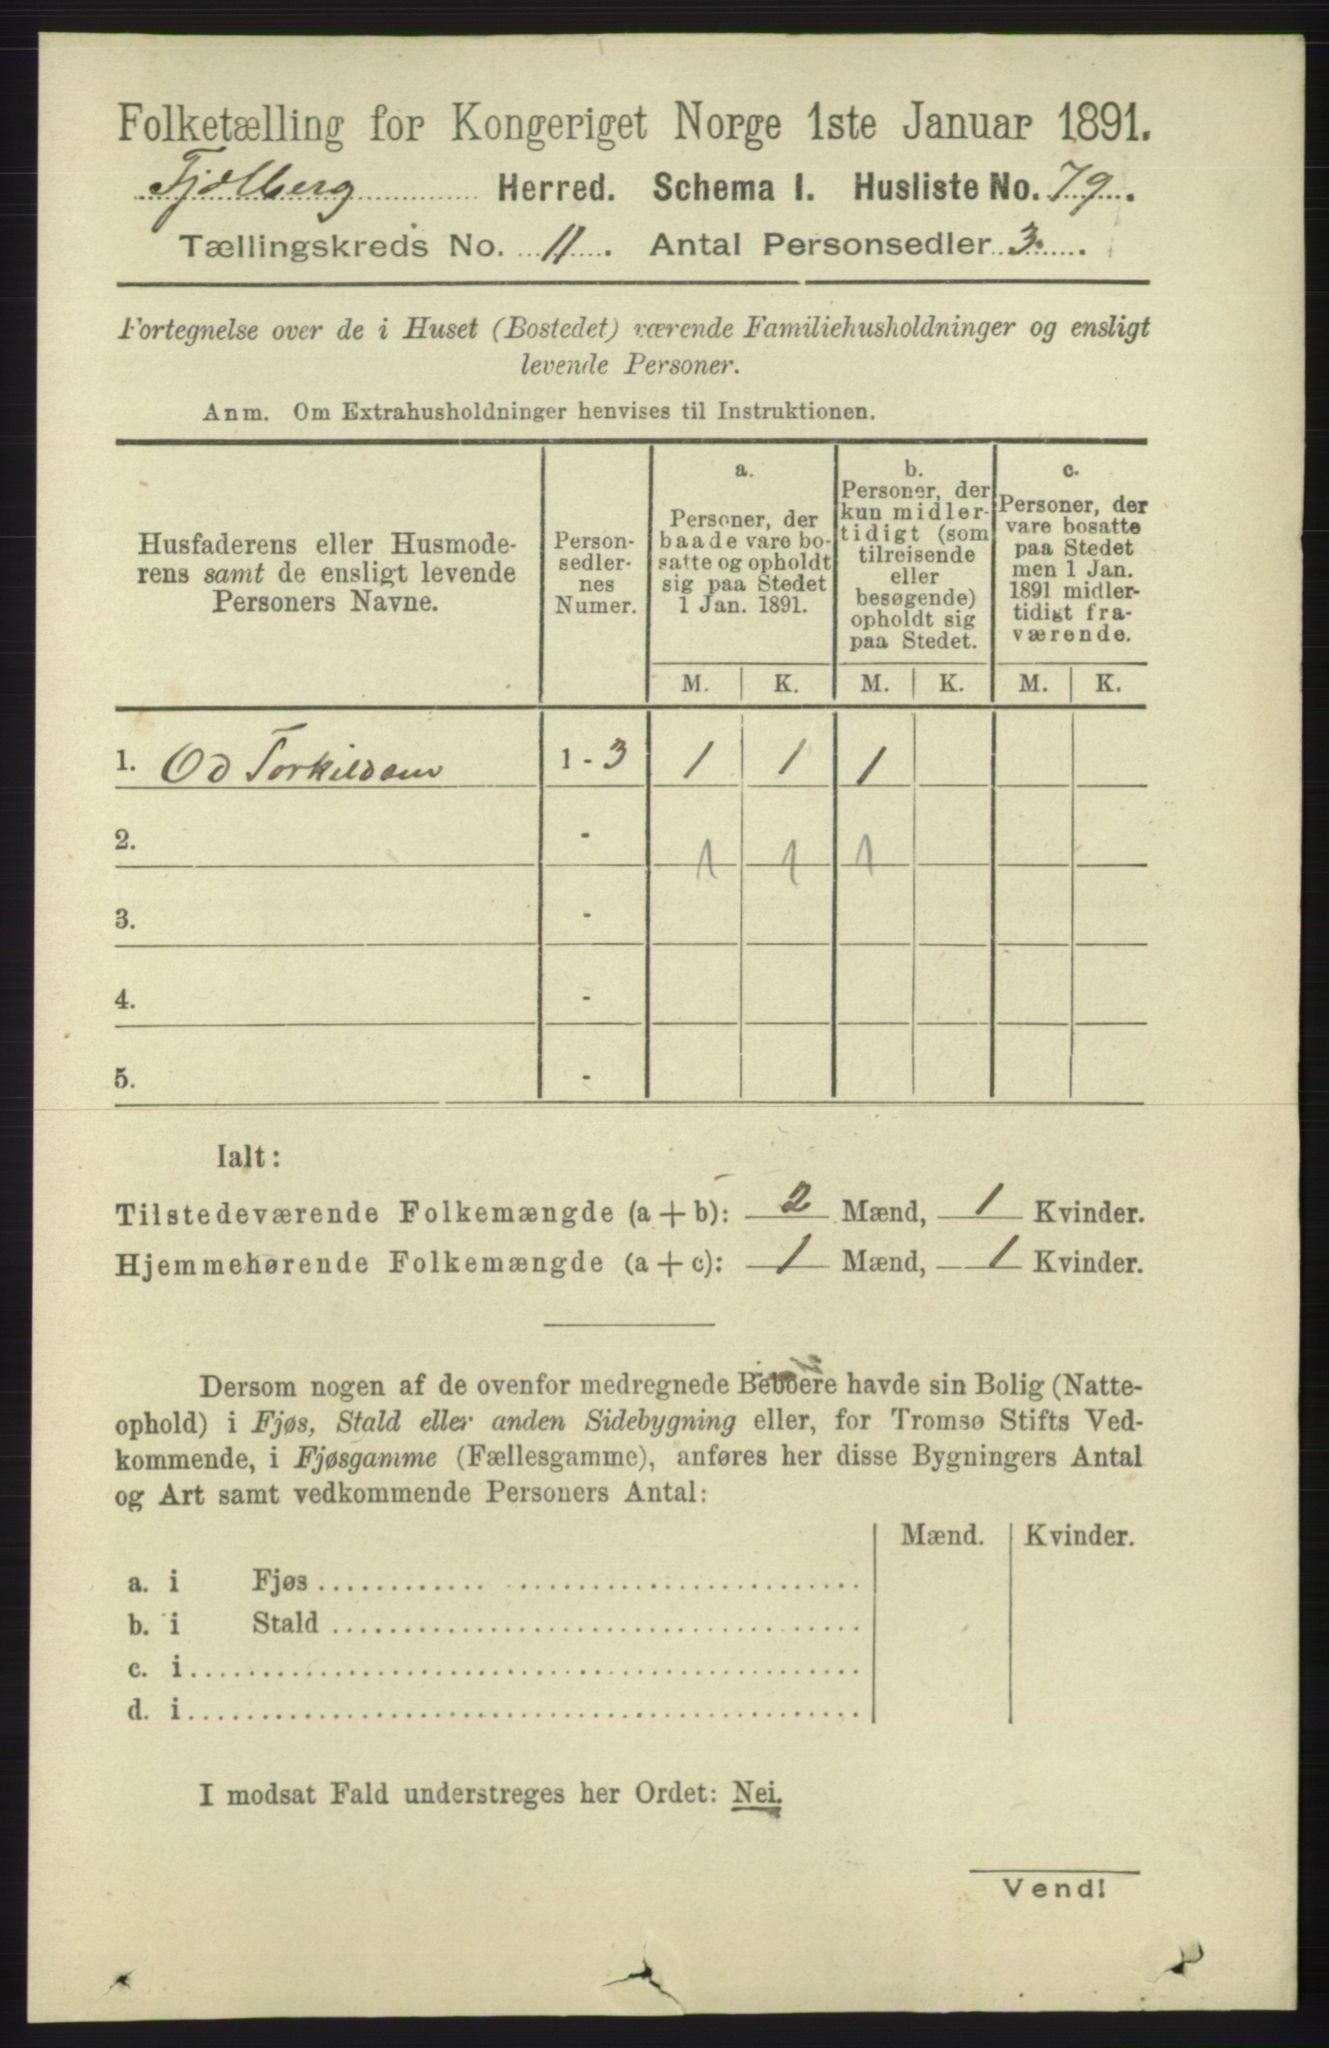 Folketælling for Kongeriget Norge 1ste Januar 1891.
Fjelberg Herred. Schema I. Husliste No. 79.
Tællingskreds No. 11. Antal Personsedler 3.
Fortegnelse over de i Huset (Bostedet) værende Familiehusholdninger og ensligt
levende Personer.
Anm. Om Extrahusholdninger henvises til Instruktionen.
Husfaderens eller Husmode-
rens samt de ensligt levende
Personers Navne.
Person-
sedler-
nes
Numer.
a.
Personer, der
baade vare bo-
satte og opholdt
sig paa Stedet
1 Jan. 1891.
b.
Personer, der
kun midler-
tidigt (som
tilreisende
eller
besøgende)
opholdt sig
paa Stedet.
c.
Personer, der
vare bosatte
paa Stedet
men 1 Jan.
1891 midler-
tidigt fra-
værende.
M. K. M. K. M. K.
1. Od Torkildsen 1 - 3 1 1 1
2. - 1 1 1
3. -
4. -
5. -
Ialt:
Tilstedeværende Folkemængde (a + b): 2 Mænd, 1 Kvinder.
Hjemmehørende Folkemængde (a + c): 1 Mænd, 1 Kvinder.
Dersom nogen af de ovenfor medregnede Beboere havde sin Bolig (Natte-
ophold) i Fjøs, Stald eller anden Sidebygning eller, for Tromsø Stifts Ved-
kommende, i Fjøsgamme (Fællesgamme), anføres her disse Bygningers Antal
og Art samt vedkommende Personers Antal:
Mænd. Kvinder.
a. i Fjøs
b. i Stald
c. i
d. i
I modsat Fald understreges her Ordet: Nei.
Vend!